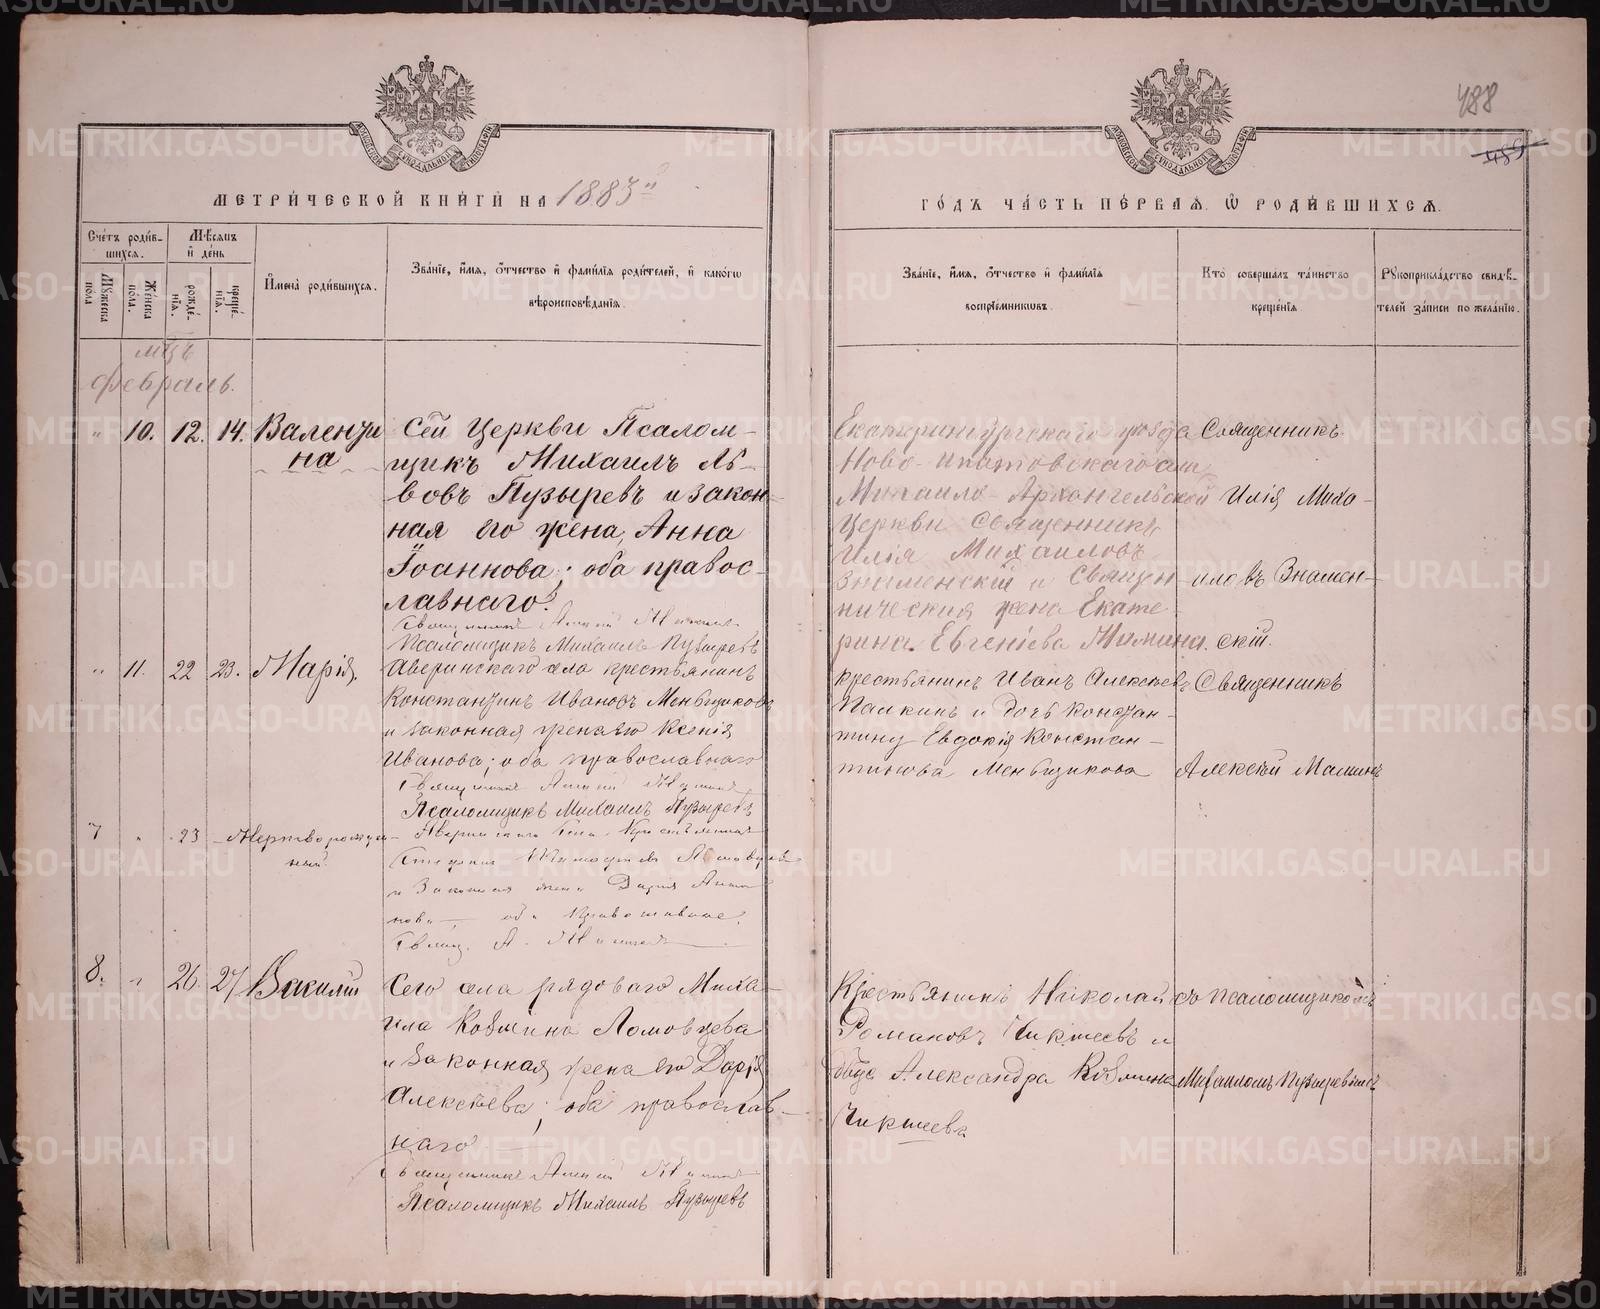 488
489
МЕТРИ́ЧЕСКОЙ КНИ́ГИ НА 1883й
ГО́ДЪ ЧА́СТЬ ПЕ́РВАЯ. Ѽ РОДИ́ВШИХСЯ.
Сче́тъ роди́в-
шихся.
Мꙋжеска по́ла
Же́нска по́ла.
Мѣ́сяцъ
и҆ де́нь
рожде́-
нїя.
креще́-
нїя.
И҆мена̀ роди́вшихся.
Зва́нїе, и҆́мя, ѻ҆́тчество и҆ фами́лїя роди́телей, и҆ како́гѡ
вѣроисповѣ́данїя.
Зва́нїе, и҆́мя, ѻ҆́тчество и҆ фами́лїя
воспрїе́мниковъ.
Кто̀ соверша́лъ та́инство
креще́нїя.
Рꙋкоприкла́дство свидѣ́-
телей за́писи по жела́нїю.
мцъ
Февраль.
" 10. 12. 14. Валенти
на
Сей Церкви Псалом-
щикъ Михаилъ Ль-
вовъ Пузыревъ и закон-
ная его жена, Анна
Іоаннова; оба правос-
лавнаго.
Священникъ Алексій
Псаломщикъ Михаилъ Пузыревъ
Екатеринбургскаго уѣзда
Ново-Ипатовскаго села
Михаило-Архангельской
Церкви Священникъ
Илія Михаиловъ
Знаменскій и Священ-
ническая жена Екате-
рина Евгеніева Мамина.
Священникъ
Илія Миха-
иловъ Знамен-
скій.
" 11. 22 23. Марія,
Аверинскаго села крестьянинъ
Константинъ Ивановъ Меньщиковъ
и законная жена его Ксенія
Иванова; оба православнаго
Священникъ Алексій
Псаломщикъ Михаилъ Пузыревъ
Крестьянинъ Иванъ Алексѣевъ
Палкинъ и дочь Констан-
тину Евдокія Констан-
тинова Меньщикова
Священникъ
Алексѣй Маминъ
7 " 23 Мертворожден-
ный.
Аверинскаго Села Крестьянинъ
и Законная жена Дарія Анто
нова — оба Православные.
Свящ. А.
8. " 26. 27 Василій
Сего села рядоваго Миха-
ила Козмина Ломовцева
и законная жена его Дарія
Алексѣева; оба православ-
наго
Священникъ Алексій
Псаломщикъ Михаилъ Пузыревъ
Крестьянинъ Николай
Романовъ Чикшевъ и
Александра Козмина
Чикшева
Псаломщикомъ
Михаиломъ Пузыревымъ
METRIKI.GASO-URAL.RU